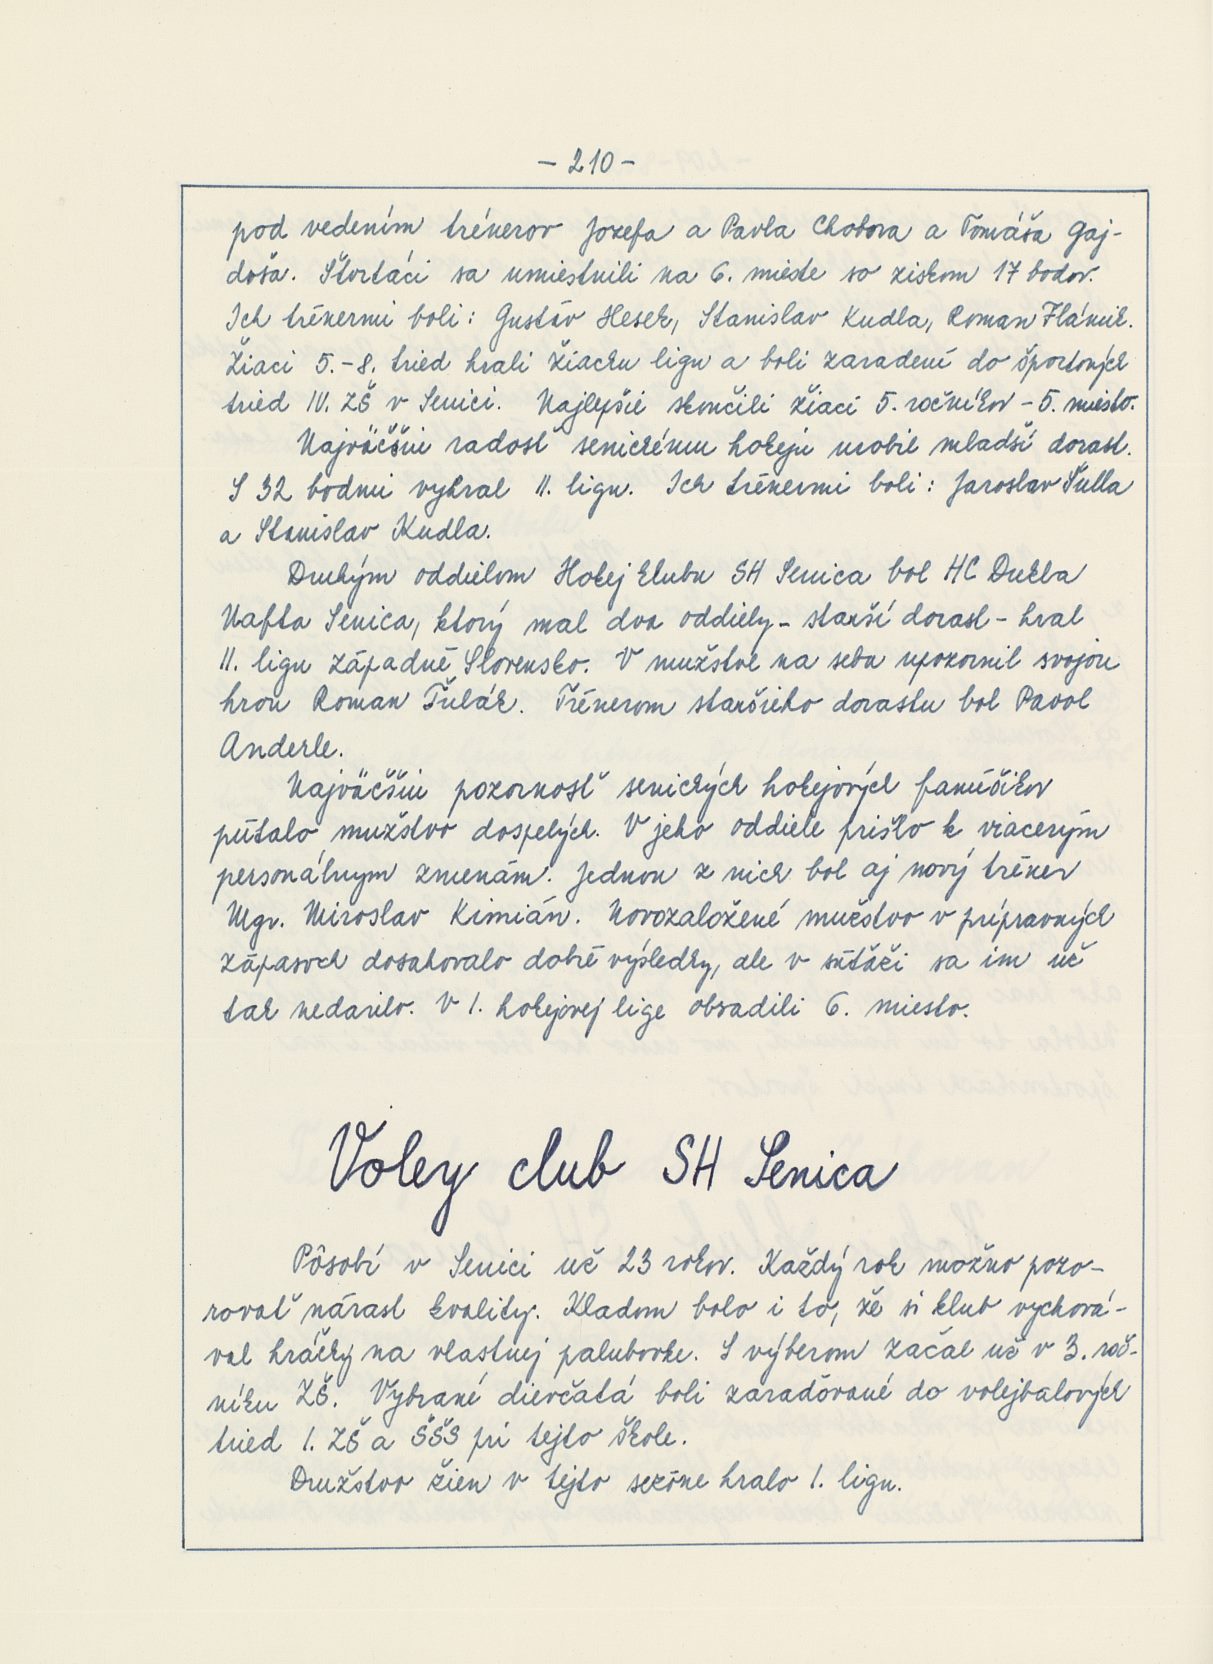 - 210 -
pod vedením trénerov Jozefa a Pavla Chobora a Tomáša Gaj-
doša. Štvrtáci sa umiestnili na 6. mieste so ziskom 17 bodov.
Ich trénermi boli: Gustáv Hesek, Stanislav Kudla, Roman Flámik.
Žiaci 5.-8. tried hrali žiacku ligu a boli zaradení do športových
tried IV. ZŠ v Senici. Najlepšie skončili žiaci 5. ročníkov - 5. miesto.
Najväčšiu radosť senickému hokeju urobil mladší dorast.
S 32 bodmi vyhral II. ligu. Ich trénermi boli: Jaroslav Šulla
a Stanislav Kudla.
Druhým oddielom Hokej klubu SH Senica bol HC Dukla
Nafta Senica, ktorý mal dva oddiely - starší dorast - hral
II. ligu západné Slovensko. V mužstve na seba upozornil svojou
hrou Roman Ťulák. Trénerom staršieho dorastu bol Pavol
Anderle.
Najväčšiu pozornosť senických hokejových fanúšikov
pútalo mužstvo dospelých. V jeho oddiele prišlo k viacerým
personálnym zmenám. Jednou z nich bol aj nový tréner
Mgr. Miroslav Kimián. Novozaložené mužstvo v prípravných
zápasoch dosahovalo dobré výsledky, ale v súťaži sa im už
tak nedarilo. V 1. hokejovej lige obsadili 6. miesto.
Voley club SH Senica
Pôsobí v Senici už 23 rokov. Každý rok možno pozo-
rovať nárast kvality. Kladom bolo i to, že si klub vychová-
val hráčky na vlastnej palubovke. S výberom začal už v 3. roč-
níku ZŠ. Vybrané dievčatá boli zaraďované do volejbalových
tried 1. ZŠ a ŠŠS pri tejto škole.
Družstvo žien v tejto sezóne hralo 1. ligu.